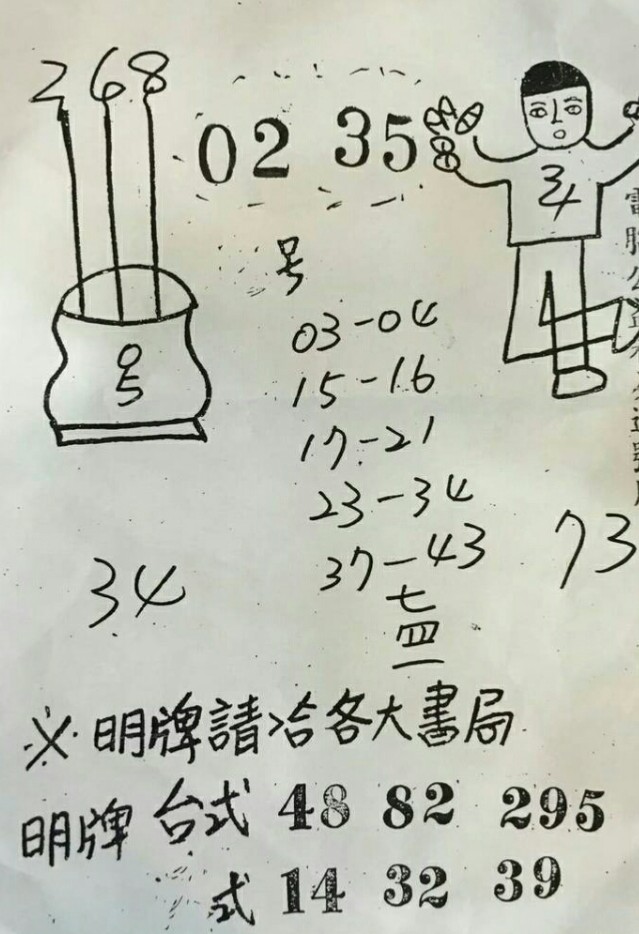 268
02 35
34
号
03-04
15-16
17-21
23-34
37-43
05
34
73
七
四
一
※明牌請洽各大書局
明牌 台式 48 82 295
式 14 32 39